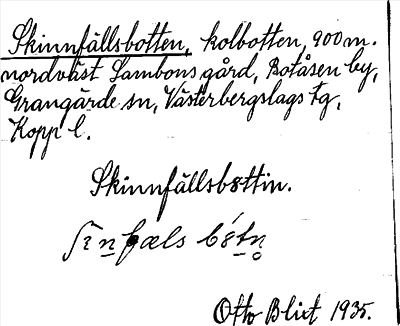 Skinnfällsbotten, kolbotten, 900 m.
nordväst Lambons gård, Botåsen by,
Grangärde sn, Västerbergslags tg,
Kopp l.
Skinnfällsbottin.
Otto Blixt 1935.